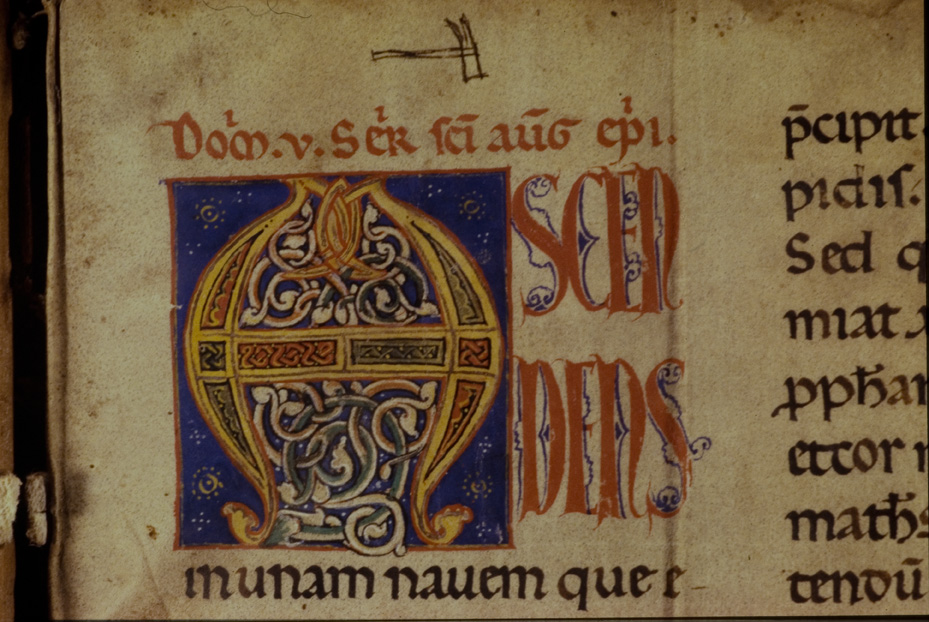 Dom̄. v. Ser̄ sc̄i aūg ep̄i.
ASCEN
DENS
in unam nauem que e-
p̄cipit
pidis.
Sed q
miat
ꝓpħan
ettor
matħs
tendū